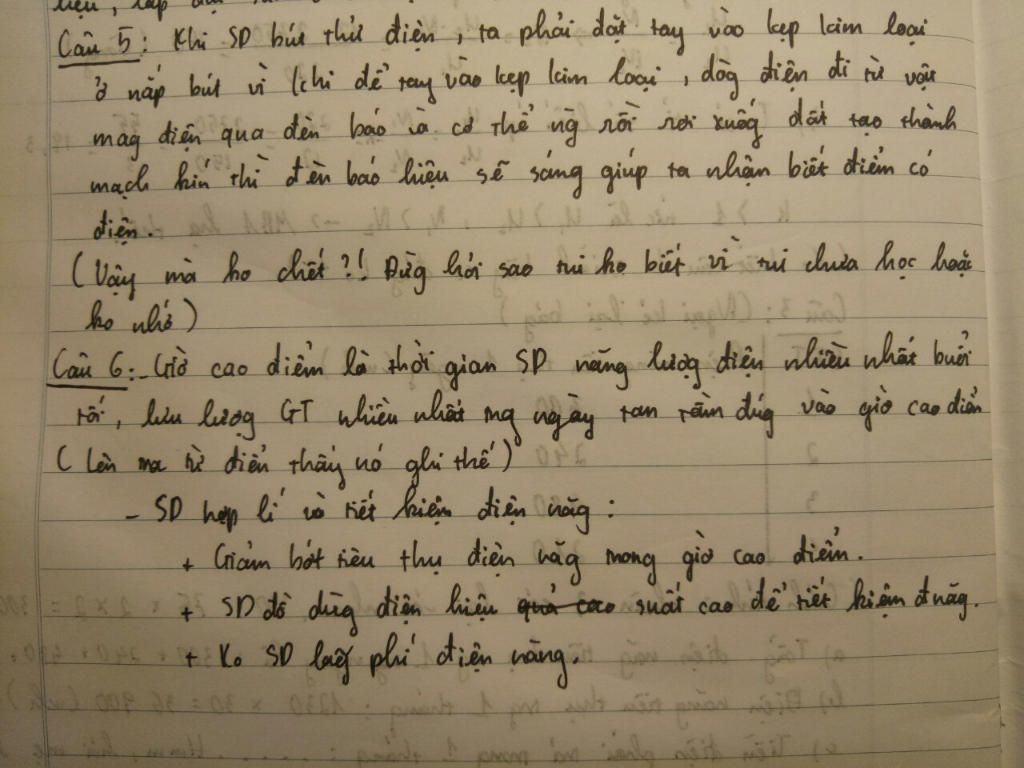 liệu, lắp đặt
Câu 5: Khi SD bút thử điện, ta phải đặt tay vào kẹp kim loại
ở nắp bút vì khi để tay vào kẹp kim loại, dòg điện đi từ vật
mag điện qua đèn báo và cơ thể ng rồi rơi xuốg đất tạo thành
mạch kín thì đèn báo hiệu sẽ sáng giúp ta nhận biết điểm có
điện.
(Vậy mà ko chết?!! Đừg hỏi sao tui ko biết vì tui chưa học hoặc
ko nhớ)
Câu 6: - Giờ cao điểm là thời gian SD năng lượg điện nhiều nhất buổi
tối, lưu lượg GT nhiều nhất trg ngày tan tầm đúg vào giờ cao điểm
(Lên mạ từ điển thấy nó ghi thế)
- SD hợp lí và tiết kiệm điện năg:
+ Giảm bớt tiêu thụ điện năg trong giờ cao điểm.
+ SD đồ dùg điện hiệu quả cao suất cao để tiết kiệm đ năg.
+ Ko SD lãg phí điện năng.